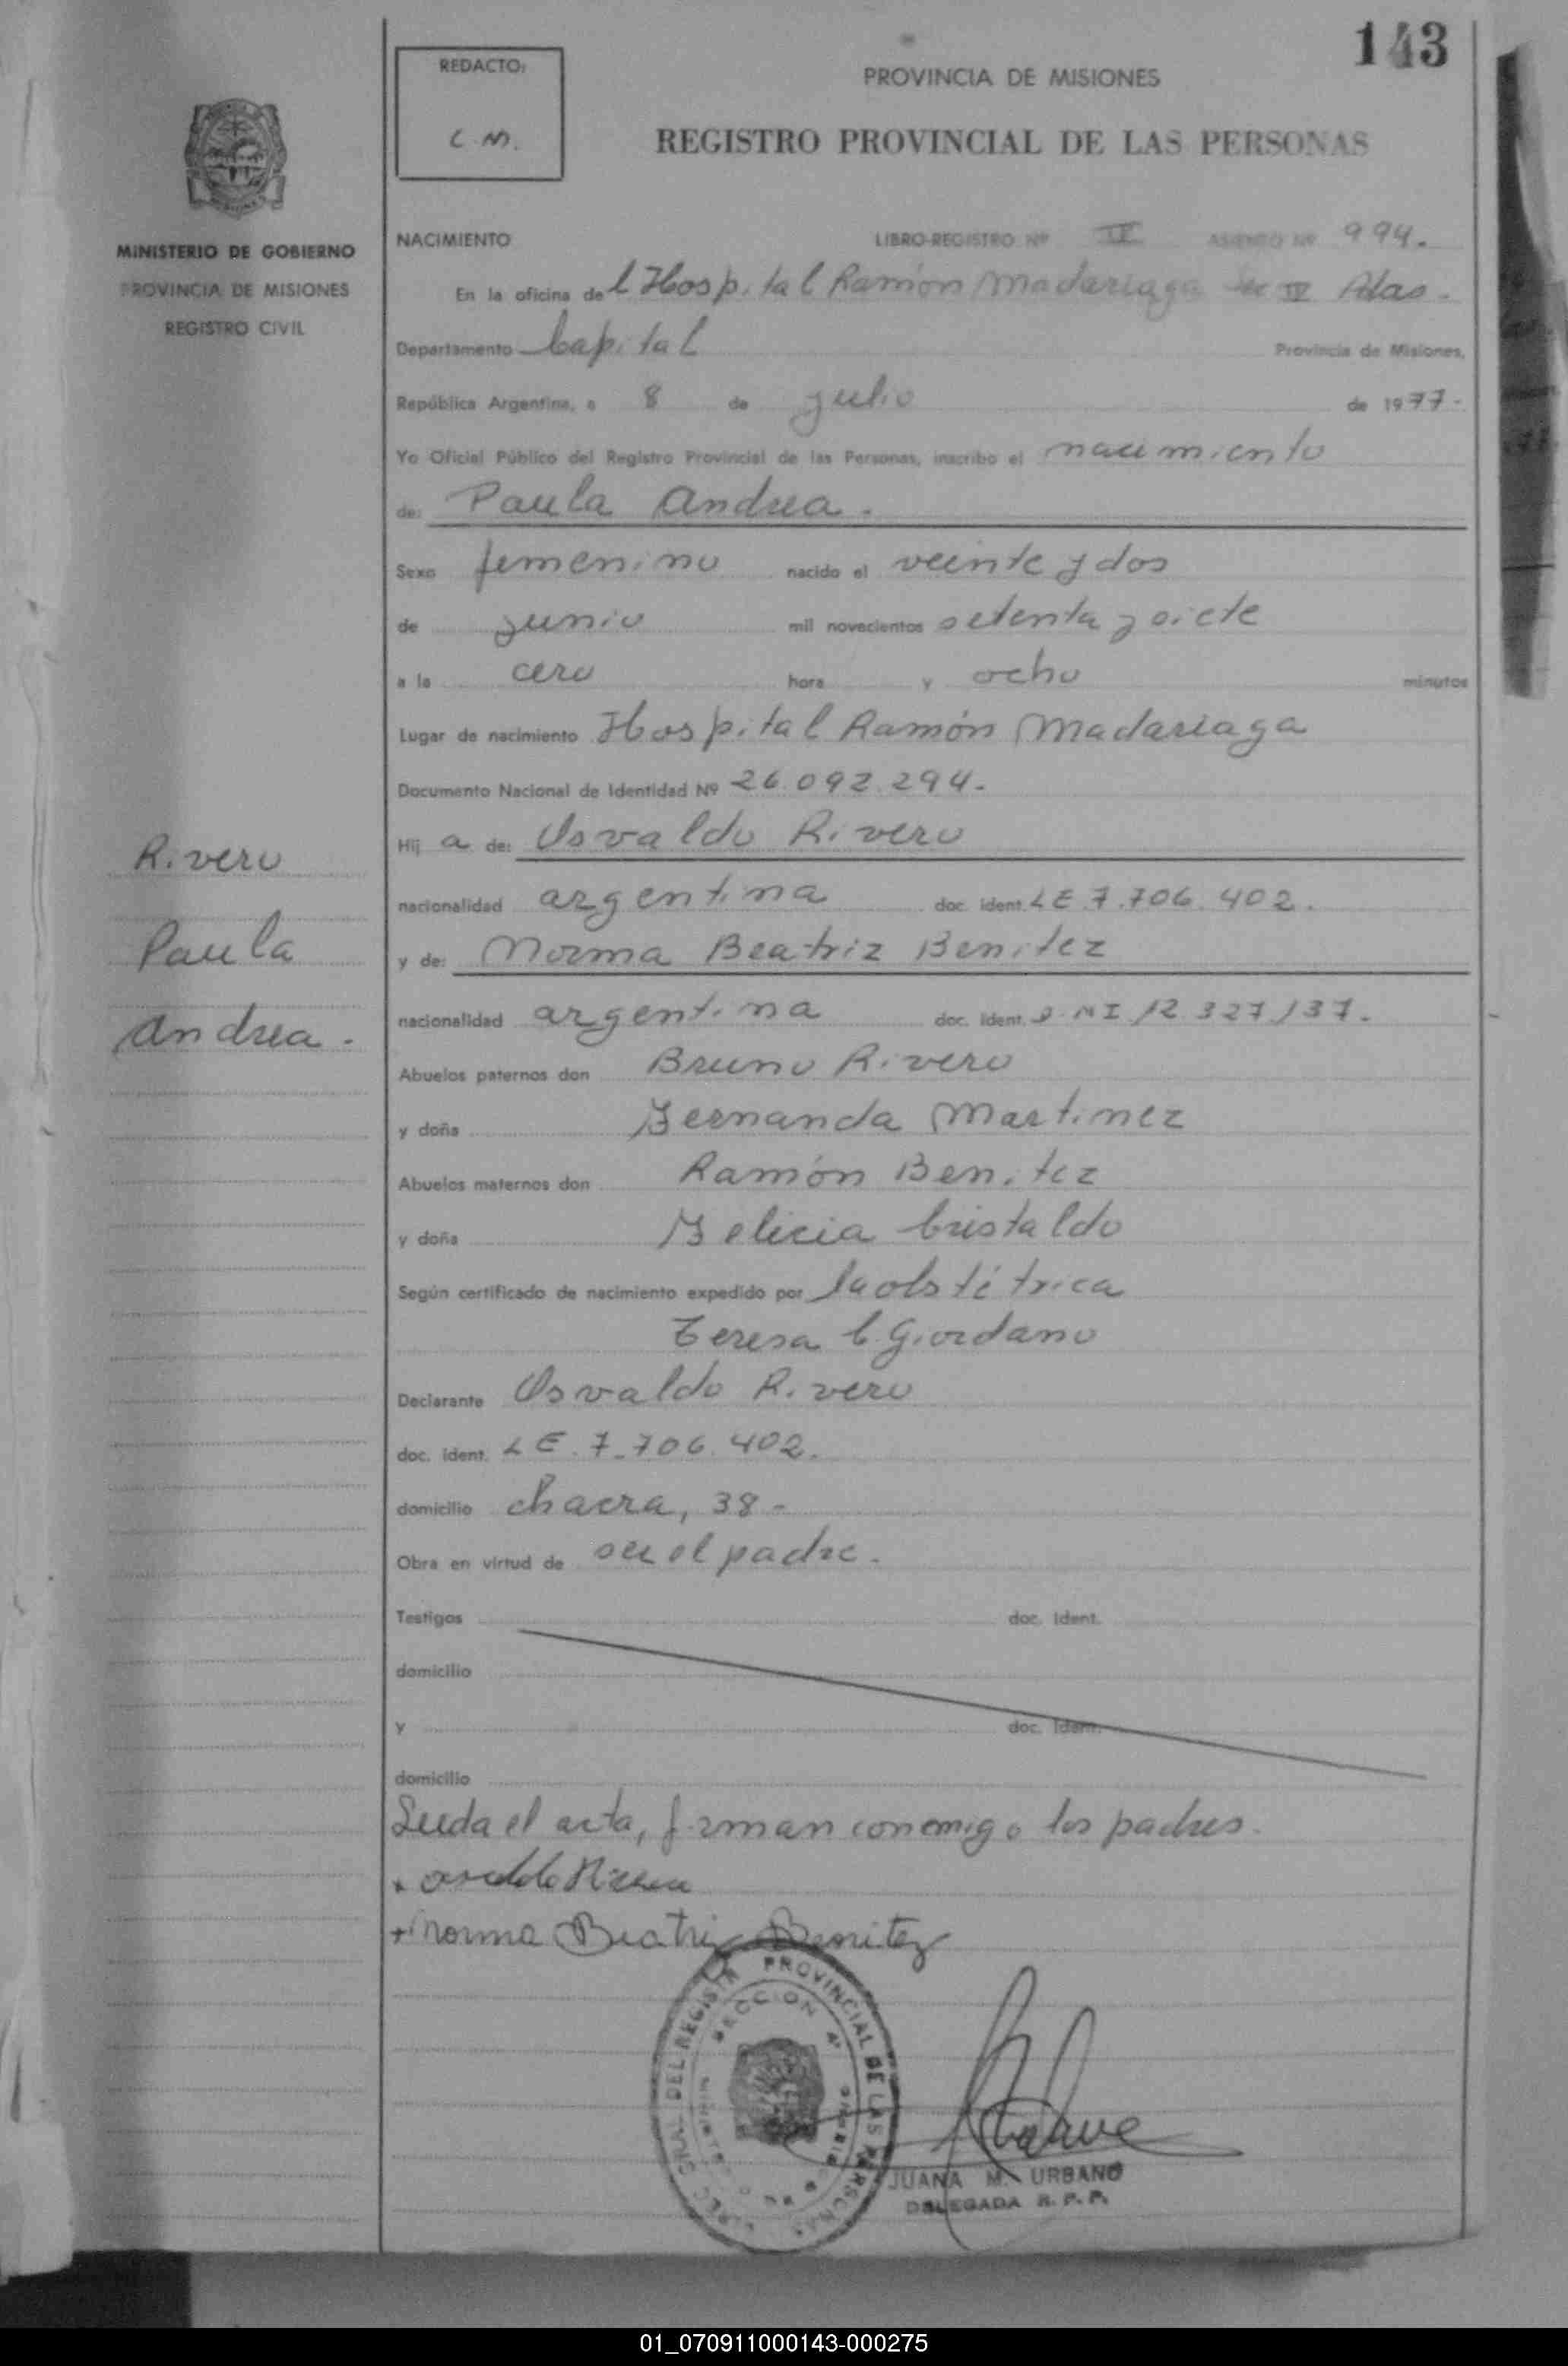 143
REDACTO:
C. M.
PROVINCIA DE MISIONES
REGISTRO PROVINCIAL DE LAS PERSONAS
MINISTERIO DE GOBIERNO
PROVINCIA DE MISIONES
REGISTRO CIVIL
NACIMIENTO LIBRO-REGISTRO Nº II ASIENTO Nº 994.
En la oficina de l Hospital Ramón Madariaga Sec IV Pdas.
Departamento Capital Provincia de Misiones,
República Argentina, a 8 de julio de 1977-
Yo Oficial Público del Registro Provincial de las Personas, inscribo el nacimiento
de: Paula Andrea.
Sexo femenino nacido el veinte y dos
de junio mil novecientos setenta y siete
a la cero hora y ocho minutos
Lugar de nacimiento Hospital Ramón Madariaga
Documento Nacional de Identidad Nº 26.092.294-
Hij a de: Osvaldo Rivero
nacionalidad argentina doc. ident. LE 7.706.402.
y de: Norma Beatriz Benitez
nacionalidad argentina doc. ident. D.NI 12.327.137.
Abuelos paternos don Bruno Rivero
y doña Fernanda Martinez
Abuelos maternos don Ramón Benitez
y doña Felicia Cristaldo
Según certificado de nacimiento expedido por la obstétrica
Teresa C. Giordano
Declarante Osvaldo Rivero
doc. ident. LE. 7.706.402.
domicilio chacra, 38-
Obra en virtud de ser el padre.
Testigos doc. ident.
domicilio
y doc. ident.
domicilio
Leida el acta, firman conmigo los padres.
+ Osvaldo Rivero
+ Norma Beatriz Benitez
Rivero
Paula
Andrea.
DIREC. GRAL. DEL REGISTRO PROVINCIAL DE LAS PERSONAS
SECCION 4ª
JUANA M. URBANO
DELEGADA R. P. P.
01_070911000143-000275